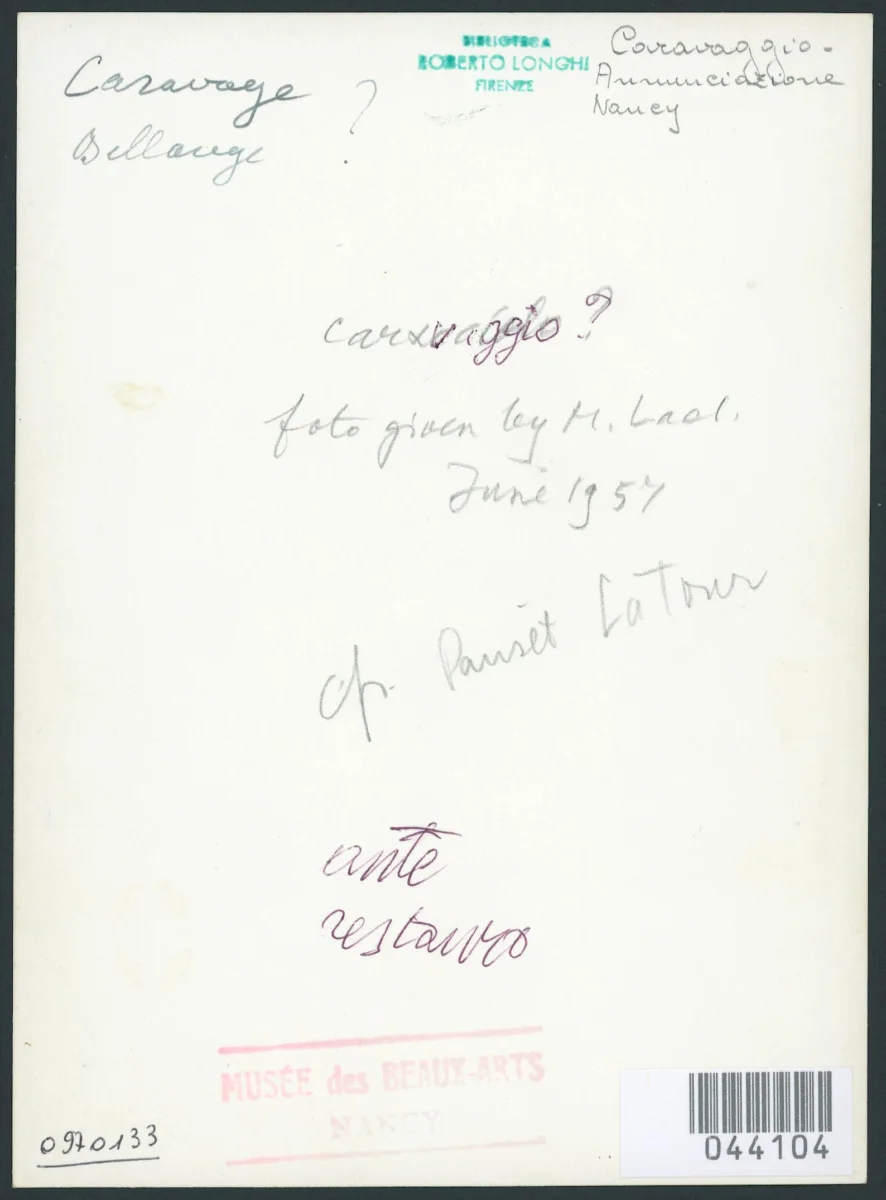 Caravage
Bellange ?
BIBLIOTECA
ROBERTO LONGHI
FIRENZE
Caravaggio -
Annunciazione
Nancy
caravaggio ?
foto given by M. Lacl.
June 1957
cfr. Pariset La Tour
ante
restauro
MUSÉE des BEAUX-ARTS
NANCY
0970133
044104